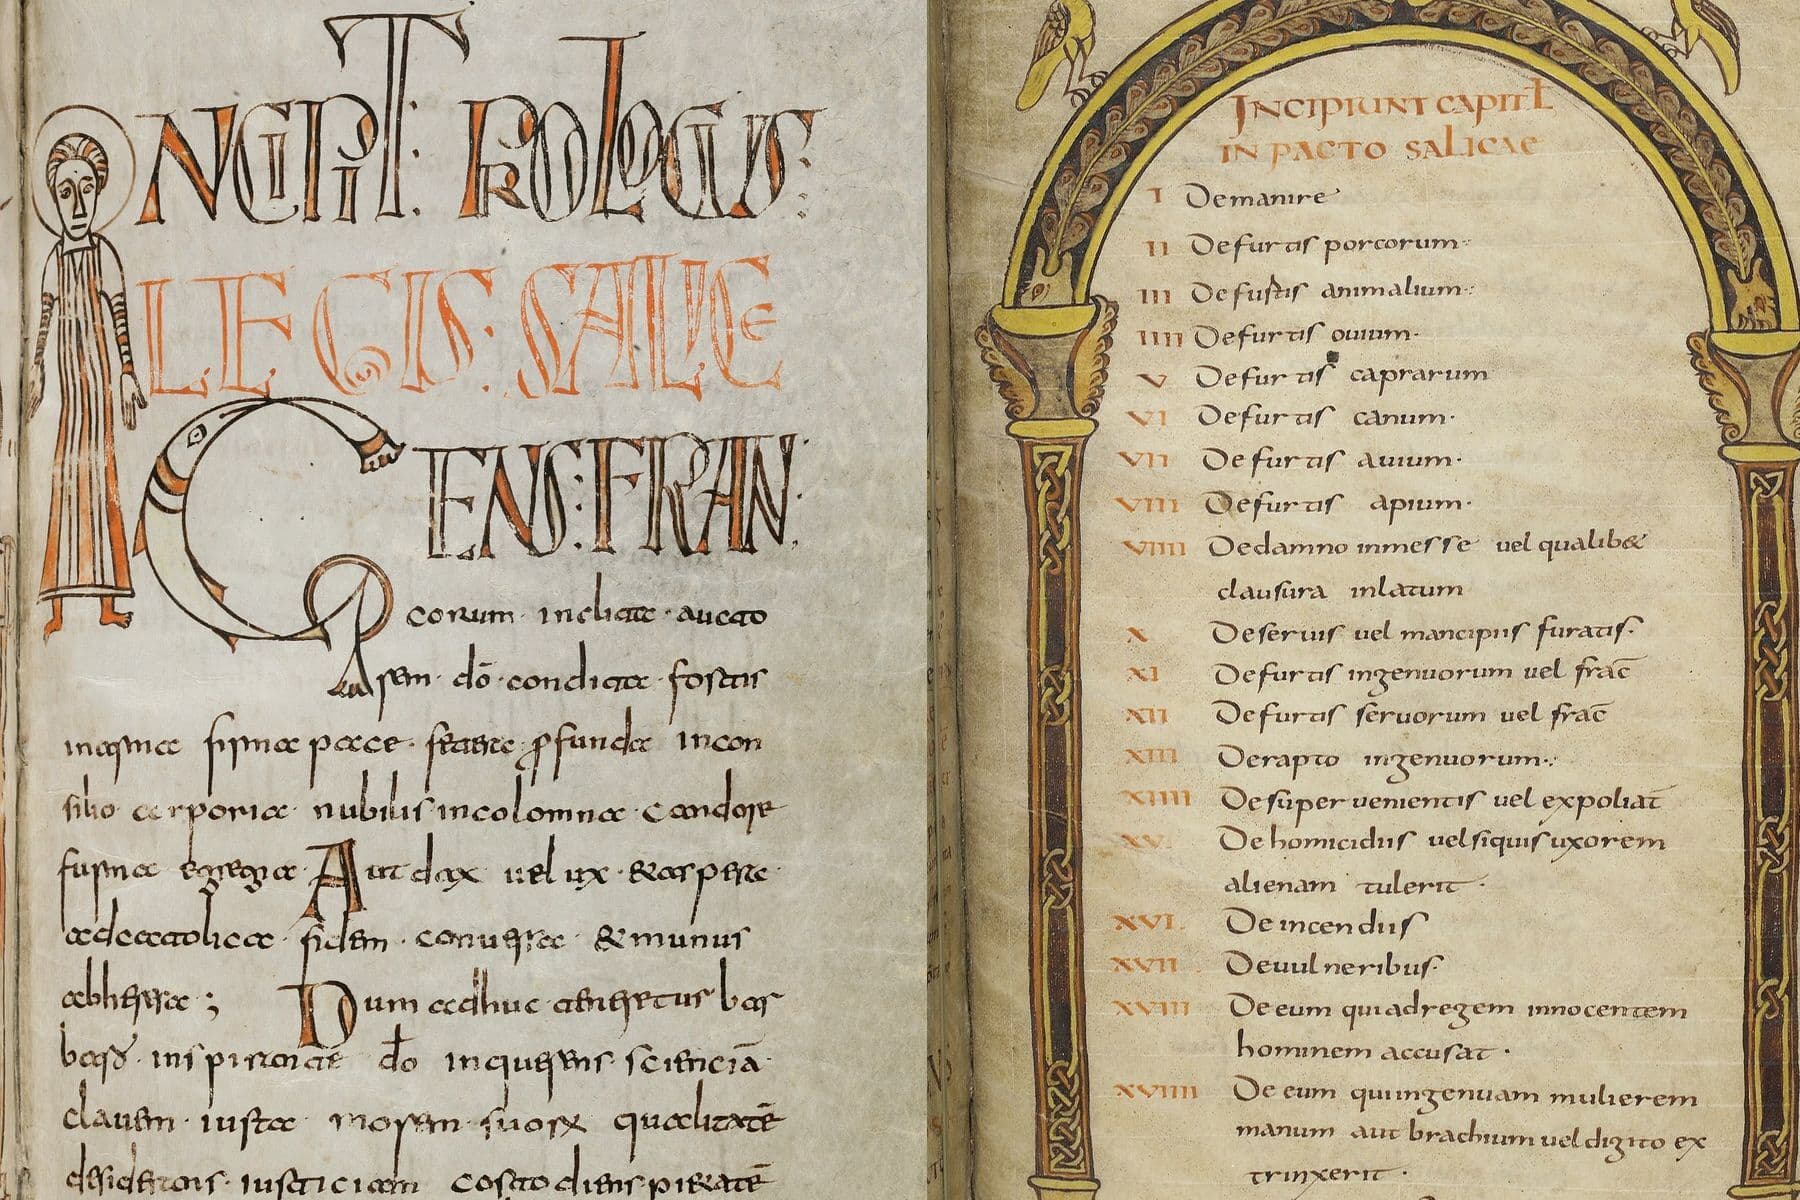 INCIPIT PROLOGUS:
LEGIS: SALICE
GENS: FRAN
corum · inclita · aucto
rem · dō · condita · fortis
in arma firma pace · profunda in con
silio corporea · nubilis incolomna · candore
forma egregia · Audax velox · & aspera
ad catolica · fidem · conuersa · & munus
ab heresa ;  Dum adhuc teneretur bar
bara · inspirante dō inquerens scienciā
clauem · iusta morem suorum qualitatē
desiderans · iusticiam costodiens pietatē
INCIPIUNT CAPITL
IN PACTO SALICAE
I De manire
II De furtis porcorum
III De furtis animalium
IIII De furtis ouium
V De furtis caprarum
VI De furtis canum
VII De furtis auium
VIII De furtis apium
VIIII De damno in messe uel qualib&
clausura inlatum
X De seruis uel mancipiis furatis
XI De furtis ingenuorum uel frac̄
XII De furtis seruorum uel frac̄
XIII De rapto ingenuorum
XIIII De superuenientis uel expoliat̄
XV De homicidiis uel siquis uxorem
alienam tulerit
XVI De incendiis
XVII De uulneribus
XVIII De eum qui ad regem innocentem
hominem accusat
XVIIII De eum qui ingenuam mulierem
manum aut brachium uel digito ex
trinxerit